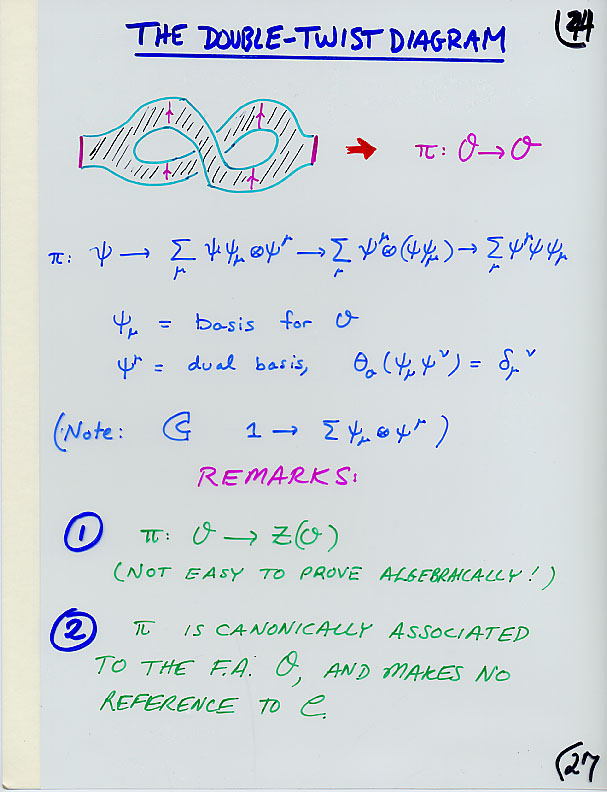 THE DOUBLE-TWIST DIAGRAM
24
π: O → O
π: ψ → Σ_μ ψψ_μ ⊗ ψ^μ → Σ_μ ψ^μ ⊗ (ψψ_μ) → Σ_μ ψ^μ ψ ψ_μ
ψ_μ = basis for O
ψ^μ = dual basis, θ_o(ψ_μ ψ^ν) = δ_μ^ν
(Note: 1 → Σ ψ_μ ⊗ ψ^μ)
REMARKS:
① π: O → Z(O)
(NOT EASY TO PROVE ALGEBRAICALLY!)
② π IS CANONICALLY ASSOCIATED
TO THE F.A. O, AND MAKES NO
REFERENCE TO C.
27